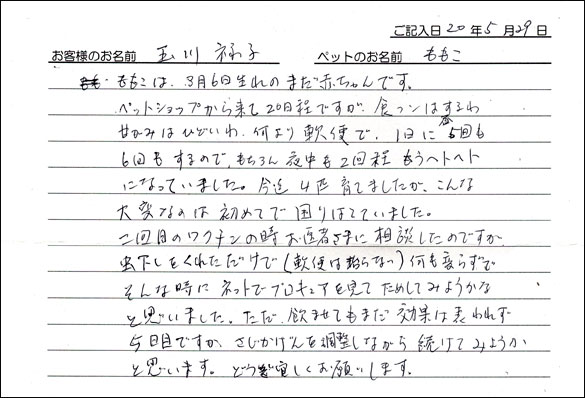 ご記入日 20年 5月 29日
お客様のお名前 玉川 ペットのお名前 ももこ
ももこは、3月6日生れの まだ赤ちゃんです。
ペットショップから来て 20日程ですが、食フンはするわ
甘がみはひどいわ、何より 軟便で、1日に 5回も
6回も するので、もちろん 夜中も 2回程 もうヘトヘト
になっていました。今迄 4匹 育てましたが、こんな
大変なのは 初めてで 困りはてていました。
二回目のワクチンの時 お医者さまに 相談したのですが
虫下しをくれただけで(軟便は治らない) 何も変らずで
そんな時に ネットでプロキュアを見て ためしてみようかな
と思いました。ただ、飲ませてもまだ 効果は表われず
5日目ですが、さじかげんを調整しながら 続けてみようか
と思います。どうぞ宜しくお願いします。